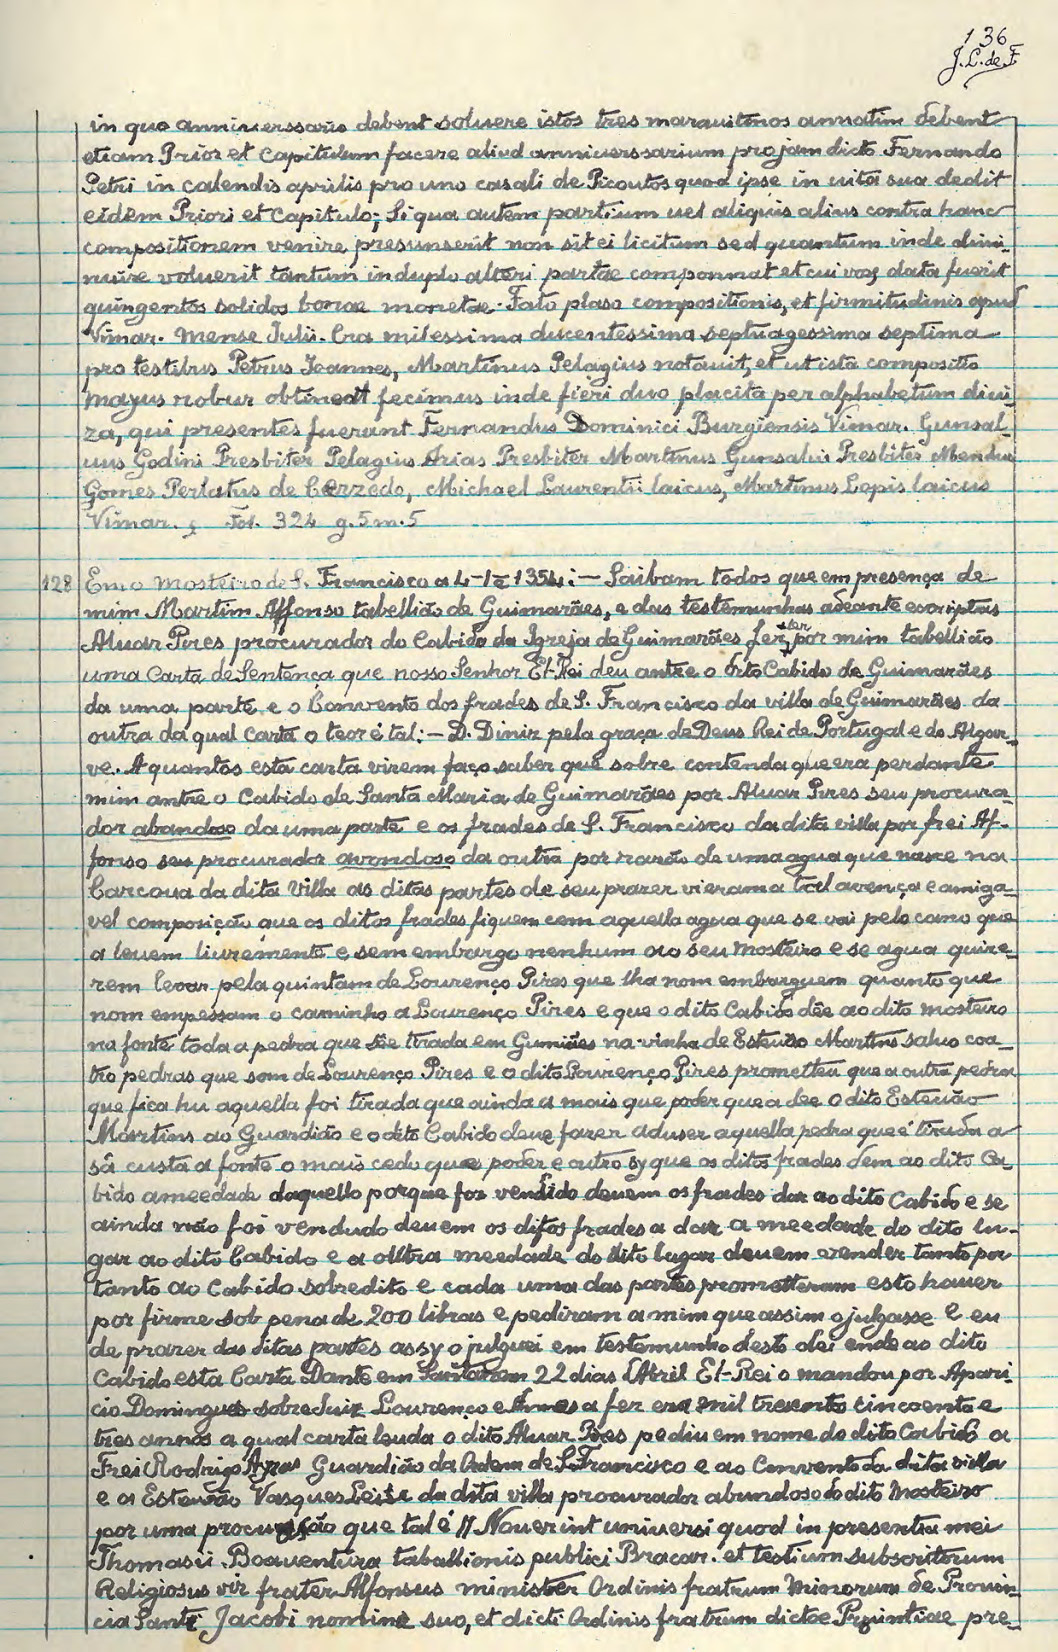 136
J. L. de F.
in quo anniuerssario debent soluere istos tres marauitinos annatim debent
etiam Prior et Capitulum facere aliud anniuerssarium pro jam dicto Fernando
Petri in calendis aprilis pro uno casali de Picoutos quod ipse in uita sua dedit
eidem Priori et Capitulo; Si qua autem partium uel aliquis alius contra hanc
compositionem venire presunserit non sit ei licitum sed quantum inde dimi-
nuire voluerit tantum in duplo alteri partae componnat et cui vox data fuerit
quingentos solidos bonae monetae. Fato plaso compositionis, et firmitudinis apud
Vimar. mense Julii. Era milessima ducentessima septuagessima septima
pro testibus Petrus Joannes, Martinus Pelagius notauit, et ut ista compositio
mayus robur obtineat fecimus inde fieri duo placita per alphabetum diui-
za, qui presentes fuerant Fernandus Dominici Burgiensis Vimar. Gunsal-
uus Godini Presbiter Pelagius Arias Presbiter Martinus Gunsalui Presbiter Mendus
Gomes Perlatus de Cerzedo, Michael Laurentii laicus, Martinus Lopis laicus
Vimar. Fol. 324 g. 5 m. 5
128 Em o mosteiro de S. Francisco a 4-1º 1354: — Saibam todos que em presença de
mim Martim Affonso tabellião de Guimarães, e das testemunhas adeante escriptas
Aluar Pires procurador do Cabido da Igreja de Guimarães fez ler por mim tabellião
uma Carta de Sentença que nosso Senhor El-Rei deu antre o dito Cabido de Guimarães
da uma parte e o Convento dos frades de S. Francisco da villa de Guimarães da
outra da qual carta o teor é tal: — D. Diniz pela graça de Deus Rei de Portugal e do Algar-
ve. A quantos esta carta virem faço saber que sobre contenda que era perdante
mim antre o Cabido de Santa Maria de Guimarães por Aluar Pires seu procura-
dor abandoso da uma parte e os frades de S. Francisco da dita villa por frei Af-
fonso seu procurador avondoso da outra por razão de uma agua que nasce na
Carcoua da dita Villa as ditas partes de seu prazer vieram a tal avença e amiga-
vel composição que os ditos frades fiquem com aquella agua que se vai pelo cano que
a leuem liuremente e sem embargo nenhum ao seu Mosteiro e se agua quize-
rem levar pela quintam de Lourenço Pires que lha nom embarguem quanto que
nom empessam o caminho a Lourenço Pires e que o dito Cabido dêe ao dito mosteiro
na fonte toda a pedra que see tirada em Gumiães na vinha de Esteuão Martins saluo coa-
tro pedras que som de Lourenço Pires e o dito Lourenço Pires prometteu que a outra pedra
que fica hu aquella foi tirada que ainda a mais que poder que a dee o dito Esteuão
Martins ao Guardião e o dito Cabido deue fazer aduser aquella pedra que é tirada a
sâ custa a fonte o mais cedo que poder e outro sy que os ditos frades dem ao dito Ca-
bido ameedade daquello porque foi vendido deuem os frades dar ao dito Cabido e se
ainda não foi vendudo deuem os ditos frades a dar a meedade do dito lu-
gar ao dito Cabido e a outra meedade do dito lugar deuem vender tanto por
tanto ao Cabido sobredito e cada uma das partes prometteram esto hauer
por firme sob pena de 200 libras e pediram a mim que assim o julgasse E eu
de prazer das ditas partes assy o julguei em testemunho desto dei ende ao dito
Cabido esta Carta Dante em Santarem 22 dias d'Abril El-Rei o mandou por Apari-
cio Domingues sobre Juiz Lourenço Annes a fez era mil trezento cincoenta e
tres annos a qual carta leuda o dito Aluar Pires pediu em nome do dito Cabido a
Frei Rodrigo Ayras Guardião da Ordem de S. Francisco e ao Convento da dita villa
e a Esteuão Vasques Leite da dita villa procurador abundoso do dito Mosteiro
por uma procuração que tal é // Nouerint universi quod in presentia mei
Thomasii Boaventura taballionis publici Bracar. et testium subscritorum
Religiosus vir frater Alfonsus minister Ordinis fratrum Minorum de Prouin-
cia Santi Jacobi nomine suo, et dicti Ordinis fratrum dictae Prouintiae pre-